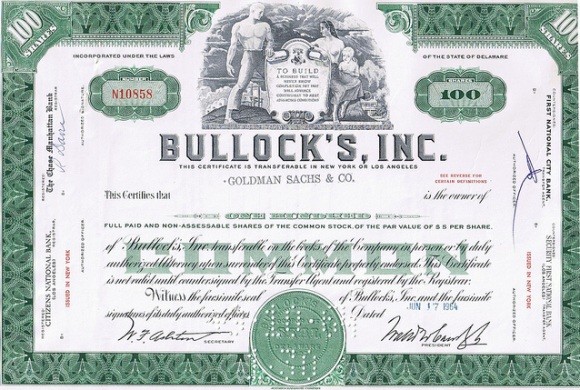 100
SHARES
100
SHARES
INCORPORATED UNDER THE LAWS
OF THE STATE OF DELAWARE
NUMBER
N10858
SHARES
100
TO BUILD
A BUSINESS THAT WILL
NEVER KNOW
COMPLETION, BUT THAT
WILL ADVANCE
CONTINUALLY TO MEET
ADVANCING CONDITIONS
BULLOCK'S, INC.
THIS CERTIFICATE IS TRANSFERABLE IN NEW YORK OR LOS ANGELES
GOLDMAN SACHS & CO.
SEE REVERSE FOR
CERTAIN DEFINITIONS
This Certifies that
is the owner of
ONE HUNDRED
FULL PAID AND NON-ASSESSABLE SHARES OF THE COMMON STOCK, OF THE PAR VALUE OF $5 PER SHARE,
COMMON
of Bullock's, Inc. transferable on the books of the Company in person or by duly
authorized Attorney upon surrender of this Certificate properly endorsed. This Certificate
is not valid until countersigned by the Transfer Agent and registered by the Registrar.
Witness the facsimile seal of Bullock's, Inc. and the facsimile
signatures of its duly authorized officers.
Dated
JUN 17 1964
SECRETARY
PRESIDENT
The Chase Manhattan Bank
REGISTRAR
AUTHORIZED OFFICER
CITIZENS NATIONAL BANK,
(LOS ANGELES) REGISTRAR
ISSUED IN NEW YORK
AUTHORIZED OFFICER
FIRST NATIONAL CITY BANK,
TRANSFER AGENT,
AUTHORIZED OFFICER
SECURITY FIRST NATIONAL BANK
(LOS ANGELES) TRANSFER AGENT
ISSUED IN NEW YORK
AUTHORIZED OFFICER